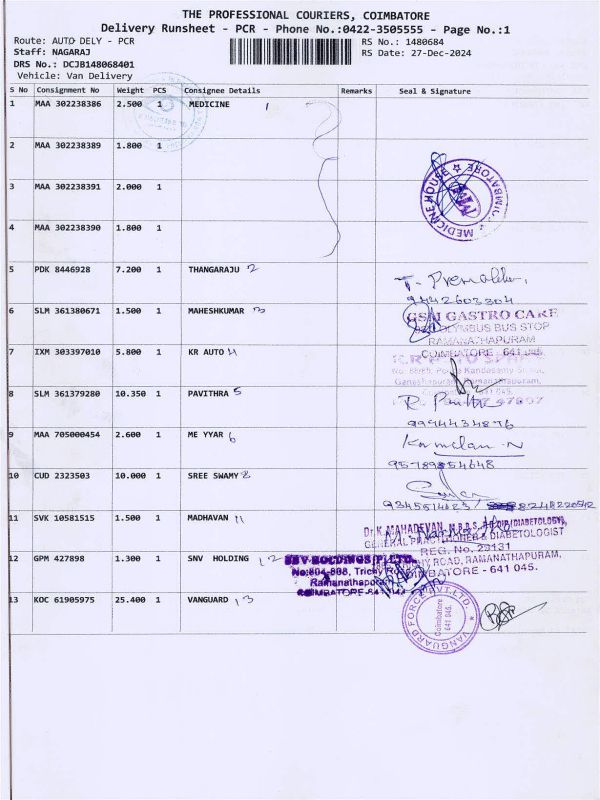 THE PROFESSIONAL COURIERS, COIMBATORE
Delivery Runsheet - PCR - Phone No.:0422-3505555 - Page No.:1
Route: AUTO DELY - PCR RS No.: 1480684
Staff: NAGARAJ RS Date: 27-Dec-2024
DRS No.: DCJB148068401
Vehicle: Van Delivery
S No Consignment No Weight PCS Consignee Details Remarks Seal & Signature
1 MAA 302238386 2.500 1 MEDICINE 1
2 MAA 302238389 1.800 1
3 MAA 302238391 2.000 1
MEDICINE HOUSE
4 MAA 302238390 1.800 1
5 PDK 8446928 7.200 1 THANGARAJU 2
9442603304
6 SLM 361380671 1.500 1 MAHESHKUMAR 3
GSM GASTRO CARE
OLYMBUS BUS STOP
RAMANATHAPURAM
COIMBATORE - 641 045.
7 IXM 303397010 5.800 1 KR AUTO 4
8 SLM 361379280 10.350 1 PAVITHRA 5
9994434876
9 MAA 705000454 2.600 1 ME YYAR 6
95789854648
10 CUD 2323503 10.000 1 SREE SWAMY 8
11 SVK 10581515 1.500 1 MADHAVAN 11
Dr.K.MAHADEVAN, M.B.B.S.,
GENERAL PRACTITIONER & DIABETOLOGIST
REG. No. 29131
ROAD, RAMANATHAPURAM,
COIMBATORE - 641 045.
12 GPM 427898 1.300 1 SNV HOLDING 12
Ramanathapuram
13 KOC 61905975 25.400 1 VANGUARD 13
VANGUARD
Coimbatore
641 045.